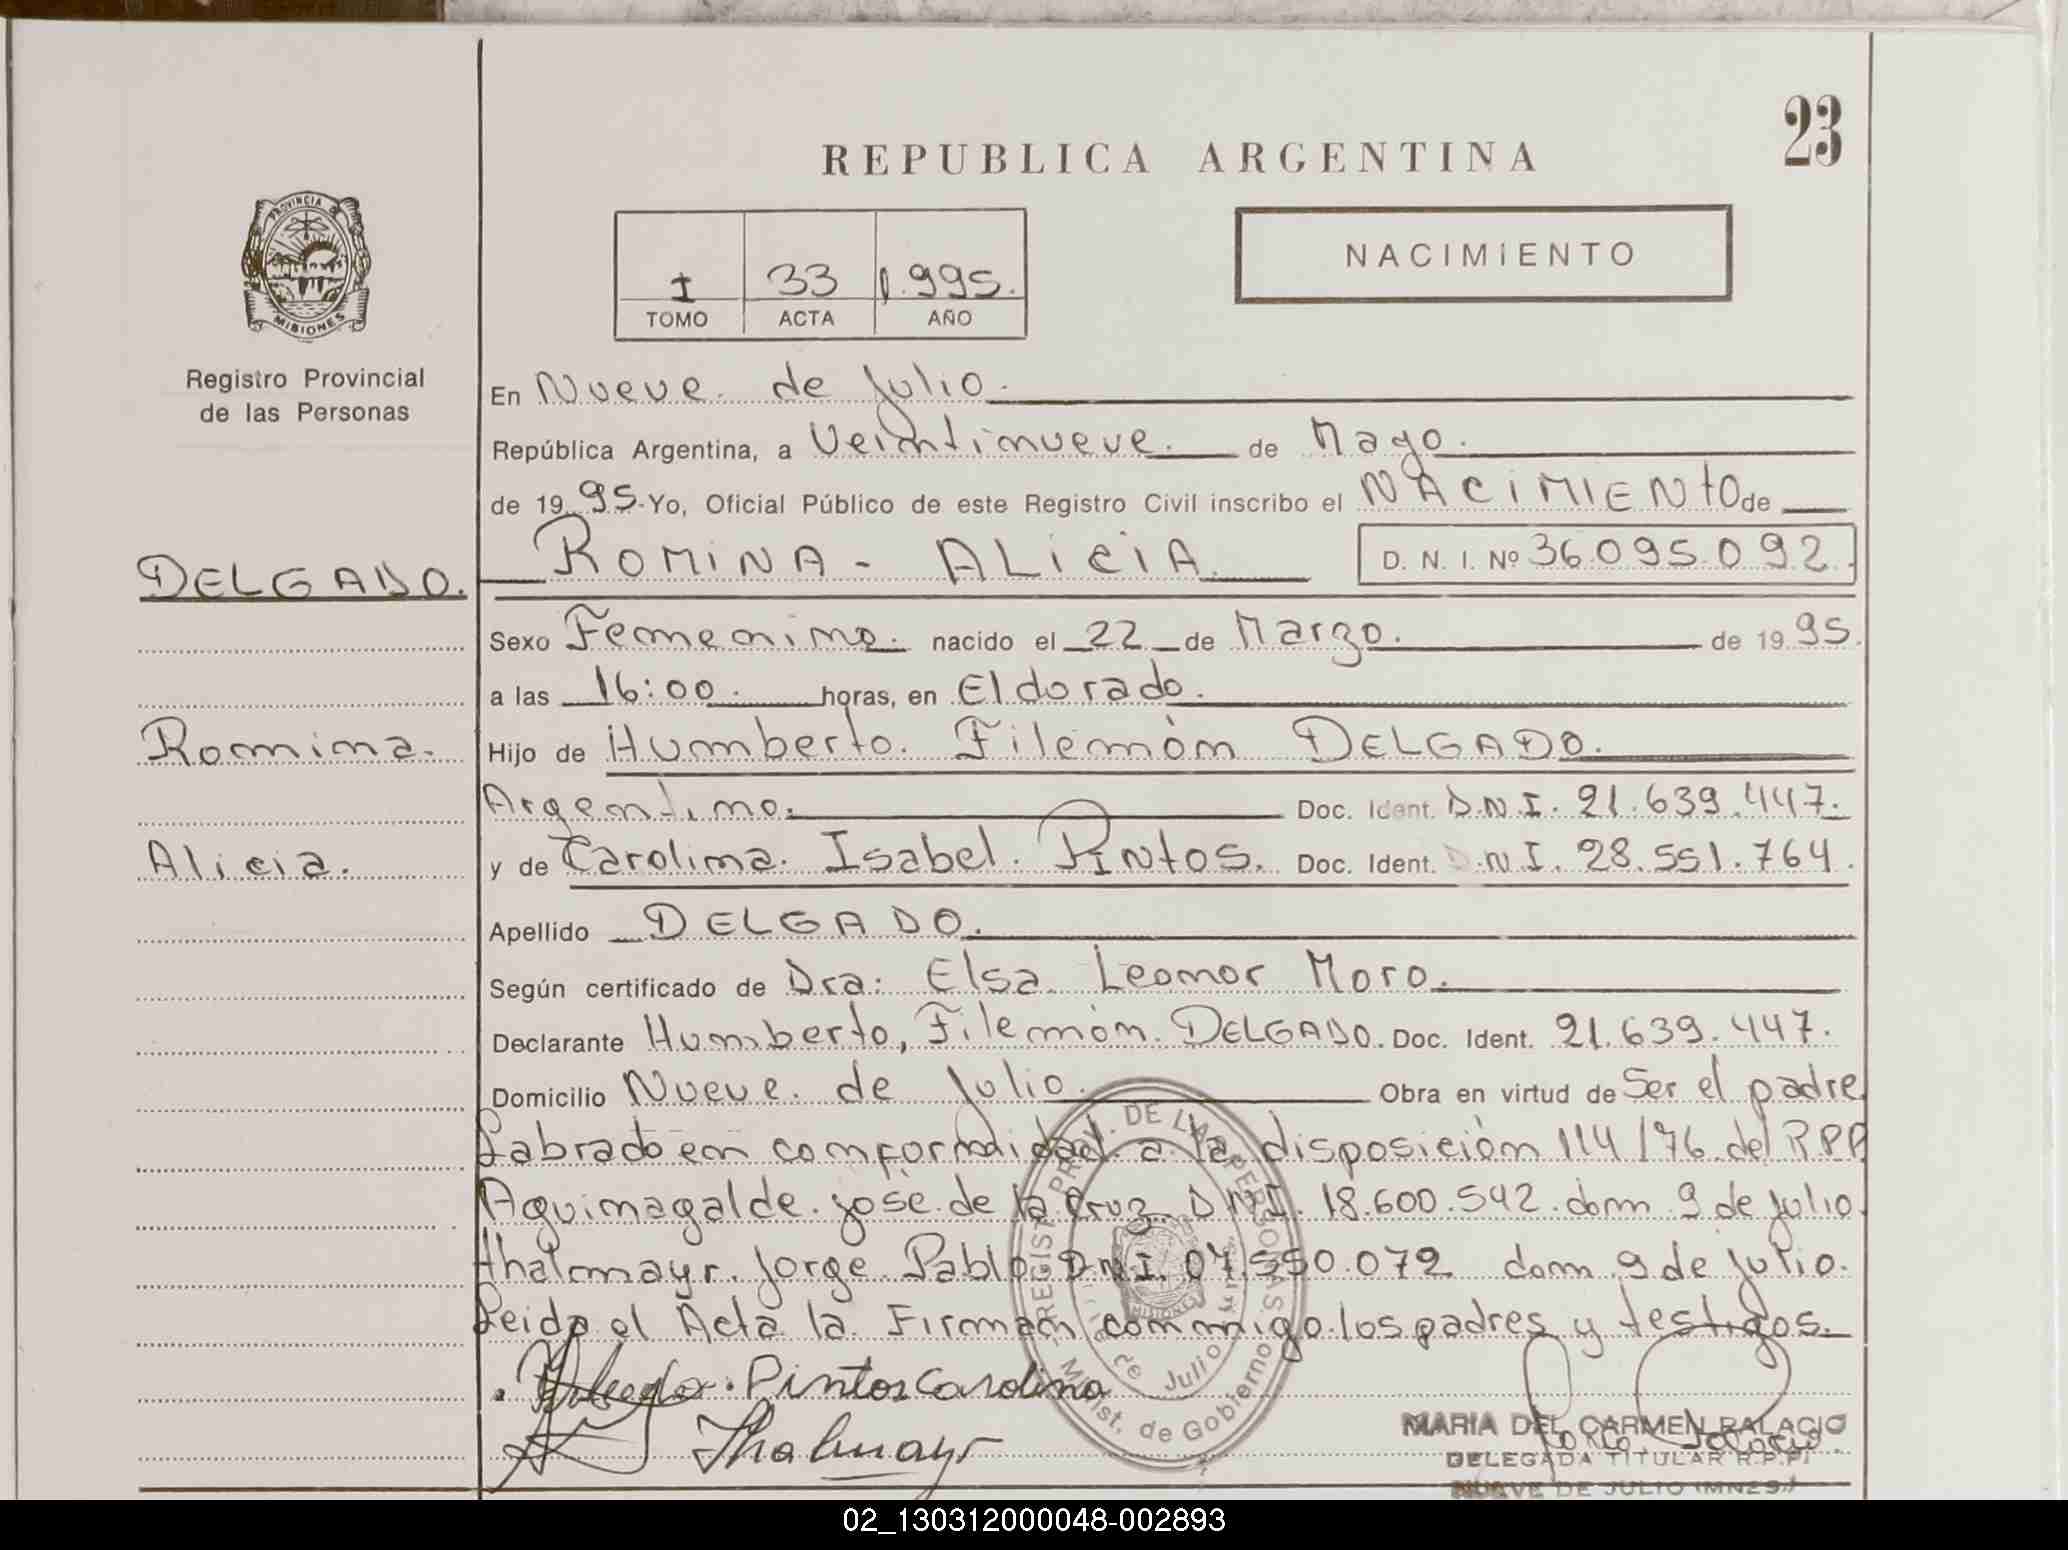 23
REPUBLICA ARGENTINA
PROVINCIA DE
MISIONES
Registro Provincial
de las Personas
I 33 1.995.
TOMO ACTA AÑO
NACIMIENTO
En Nueve de Julio.
República Argentina, a Veintinueve. de Mayo.
de 1995. Yo, Oficial Público de este Registro Civil inscribo el NACIMIENTO de
DELGADO. ROMINA - ALICIA. D. N. I. Nº 36.095.092.
Sexo Femenino. nacido el 22 de Marzo. de 1995.
a las 16:00. horas, en Eldorado.
Romina. Hijo de Humberto. Filemón DELGADO.
Argentino. Doc. Ident. D.N.I. 21.639.447.
Alicia. y de Carolina. Isabel. Pintos. Doc. Ident. D.N.I. 28.551.764.
Apellido DELGADO.
Según certificado de Dra: Elsa Leonor Moro.
Declarante Humberto, Filemón. DELGADO. Doc. Ident. 21.639.447.
Domicilio Nueve. de Julio. Obra en virtud de Ser el padre
Labrado en conformidad a la disposición 114/76 del R.P.P
Aguinagalde. José de la Cruz D.N.I. 18.600.542. dom 9 de Julio.
thalmayr. Jorge Pablo D.N.I. 07.550.072 dom 9 de Julio.
Leida el Acta la Firman conmigo los padres y testigos.
Pintos Carolina
Thalmayr
REGIST. PROV. DE LAS PERSONAS
Minist. de Gobierno
de Julio
MISIONES
MARIA DEL CARMEN PALACIO
DELEGADA TITULAR R.P.P.
NUEVE DE JULIO (MNES.)
02_130312000048-002893